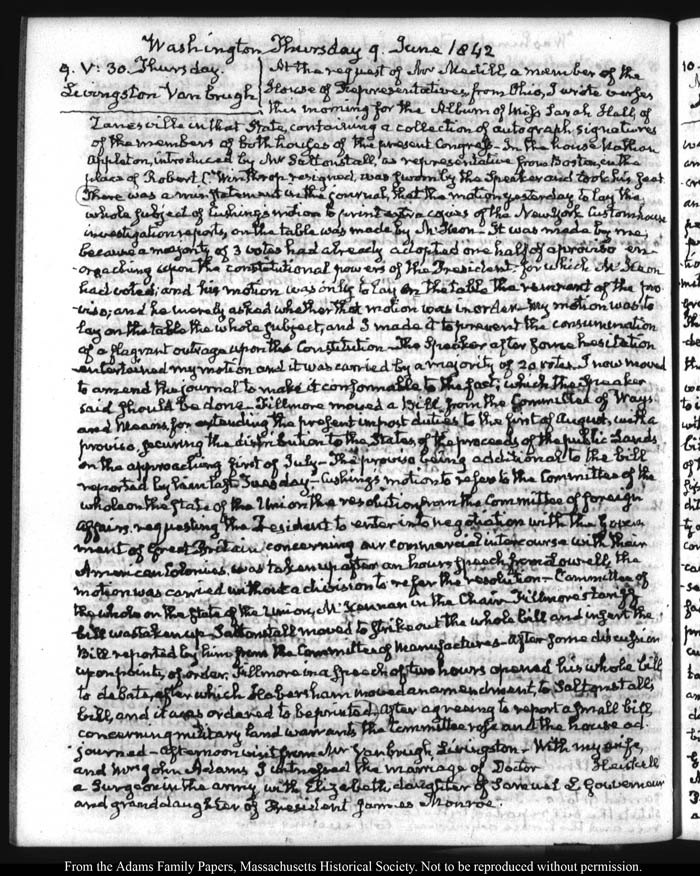 Washington Thursday 9. June 1842
9. V: 30. Thursday.
Livingston Van brugh
At the request of Mr Medill a member of the
House of Representatives, from Ohio, I wrote verses
this morning for the Album of Miss Sarah Hall, of
Zanesville in that State, containing a collection of autograph signatures
of the members of both houses of the present Congress. In the house Nathan
Appleton, introduced by Mr Saltonstall, as representative from Boston, in the
place of Robert C. Winthrop resigned, was sworn by the Speaker and took his seat
There was a misstatement in the journal, that the motion yesterday to lay the
whole subject of Cushings motion to print extra copies of the New York Customhouse
investigation reports, on the table was made by Mc Keon. It was made by me;
because a majority of 3 votes had already adopted one half of a proviso en-
croaching upon the constitutional powers of the President. for which Mc Keon
had voted; and his motion was only to lay on the table the remnant of the pro-
viso; and he merely asked whether that motion was in order. my motion was to
lay on the table the whole subject, and I made it to prevent the consummation
of a flagrant outrage upon the Constitution. The Speaker after some hesitation
entertained my motion and it was carried by a majority of 20 votes. I now moved
to amend the journal to make it conformable to the fact; which the Speaker
said should be done. Fillmore moved a Bill from the Committee of Ways
and Means, for extending the present impost duties to the first of August, with a
proviso, securing the distribution to the States, of the proceeds of the public Lands
on the approaching first of July. The proviso being additional to the bill
reported by him last Tuesday. Cushings motion to refer to the Committee of the
whole on the State of the Union the resolution from the Committee of foreign
Affairs, requesting the President to enter into negotiation with the Govern
ment of Great Britain concerning our commercial intercourse with their
American Colonies, was taken up after an hours speech from Lowell, the
motion was carried without a division to refer the resolution. Committee of
the whole on the state of the Union, Mc Kennan in the Chair. Fillmores tariff
bill was taken up. Saltonstall moved to strike out the whole bill and insert the
Bill reported by him from the Committee of Manufactures. After some discussion
upon points of order, Fillmore in a speech of two hours opened his whole bill
to debate, after which Habersham moved an amendment, to Saltonstall's
bill, and it was ordered to be printed. After agreeing to report a small bill,
concerning military land warrants the Committee rose and the house ad-
journed. afternoon visit from Mr Vanbrugh Livingston. With my wife,
and Mrs John Adams I witnessed the marriage of Doctor Heiskell
a Surgeon in the army with Elizabeth, daughter of Samuel L Gouverneur
and granddaughter of President James Monroe.
From the Adams Family Papers, Massachusetts Historical Society. Not to be reproduced without permission.